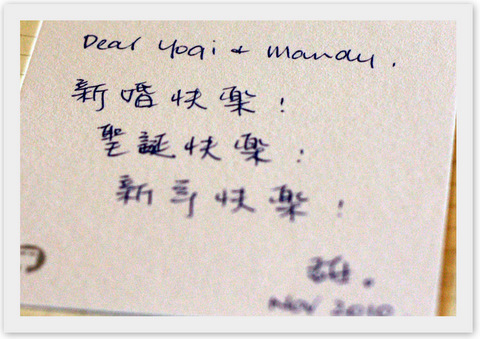 Dear Yogi & Mandy.
新婚快樂!
聖誕快樂!
新年快樂!
Nov 2010